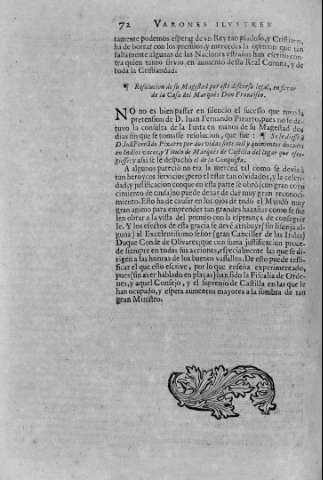 72 VARONES ILVSTRES
tamente podemos esperar de vn Rey tan piadoso, y Cristiano,
ha de borrar con los premios, y mercedes la opinion que tan
falsamente algunas de las Naciones estrañas han escrito con-
tra quien tanto sirvio en aumento desta Real Corona, y de
toda la Cristiandad.
¶ Resolucion de su Magestad por este discurso legal, en favor
de la Casa del Marquès Don Francisco.
NO no es bien passar en silencio el sucesso que tuvo la
pretension de D. Iuan Fernando Pizarro, pues no le de-
tuvo la consulta de la Iunta en manos de su Magestad dos
dias sin que se tomasse resolucion, que fue: ¶ Se le dissè à
D. Iuã Fernãdo Pizarro por dos vidas siete mil y quinientos ducados
en Indios vacos, y Titulo de Marquès de Castilla del lugar que esco-
giesse: y assi se le despachò el de la Conquista.
A algunos pareciò no era la merced tal como se devia à
tan heroycos servicios; pero el estar tan olvidados, y la celeri-
dad, y justificacion con que en esta parte se obrò (con gran cono-
cimiento de causa) no puede dexar de dar muy gran reconoci-
miento. Esto ha de causar en los ojos de todo el Mundo muy
gran animo para emprender tan grandes hazañas como se fue-
len obrar a la vista del premio con la esperança de conseguir-
le. Y los efectos de esta gracia se devē atribuyr (sin lisonja al-
guna) al Excelentissimo señor (gran Canciller de las Indias)
Duque Conde de Olivares, que con suma justificacion proce-
de siempre en todas sus acciones, especialmente las que se di-
rigen a las honras de los buenos vassallos. De esto puede testi-
ficar el que esto escrive, por lo que en si ha experimentado,
pues (sin aver hablado en plaças) han sido la Fiscalia de Orde-
nes, y aquel Consejo, y el supremo de Castilla en las que le
han ocupado, y espera aumentos mayores a la sombra de tan
gran Ministro.